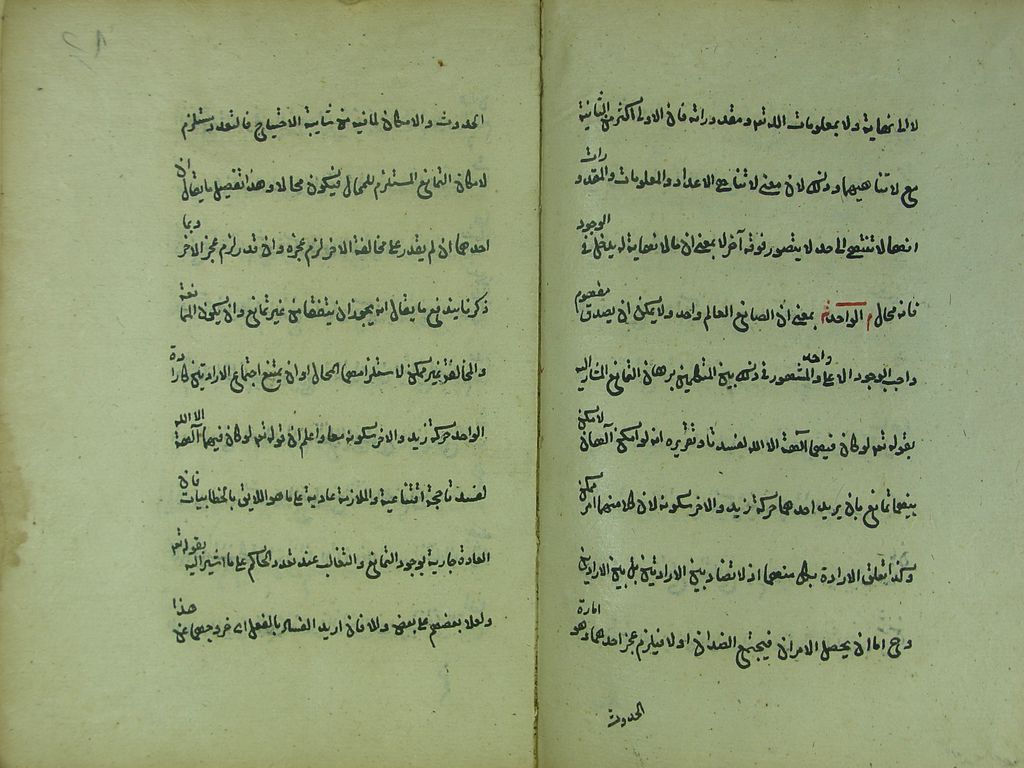 لا الى نهاية ولا بمعلومات الله تعـ ومقدوراته فان الاولى اكثر من الثانية
مع لا تناهيهما وذلك لان معنى لا تناهى الاعداد والمعلومات والمقدورات
انها لا تنتهى الى حد لا يتصور فوقه آخر لا بمعنى ان ما لا نهاية له يدخل فى الوجود
فانه محال م الواحد ش بمعنى ان الصانع العالم واحد ولا يمكن ان يصدق مفهوم
واجب الوجود الا على واحد والمشهور فى ذلك بين المتكلمين برهان التمانع المشار اليه
بقوله تعـ لو كان فيهما آلهة الا الله لفسدتا وتقريره انه لو امكن آلهان لامكن
بينهما تمانع بان يريد احدهما حركة زيد والاخر سكونه لان كلا منهما امر ممكن
وكذا تعلق الارادة بكل منهما اذ لا تضاد بين الارادتين بل بين المرادين
وح اما ان يحصل الامران فيجتمع الضدان او لا فيلزم عجز احدهما وهو امارة
الحدوث
الحدوث والامكان لما فيه من شايبة الاحتياج فالتعدد مستلزم
لامكان التمانع المستلزم للمحال فيكون محالا وهذا تفصيل ما يقال ان
احدهما ان لم يقدر على مخالفة الاخر لزم عجزه وان قدر لزم عجز الاخر وبما
ذكرنا يندفع ما يقال انه يجوز ان يتفقا من غير تمانع وان يكون الممانعة
والمخالفة غير ممكن لاستلزامهما المحال او ان يمتنع اجتماع الارادتين كارادة
الواحد حركة زيد والاخر سكونه معا واعلم ان قوله تعـ لو كان فيهما آلهة الا الله
لفسدتا حجة اقناعية والملازمة عادية على ما هو اللايق بالخطابيات فان
العادة جارية بوجود التمانع والتغالب عند تعدد الحاكم على ما اشير اليه بقوله تعـ
ولعلا بعضهم على بعض والا فان اريد الفساد بالفعل اى خروجهما عن هذا